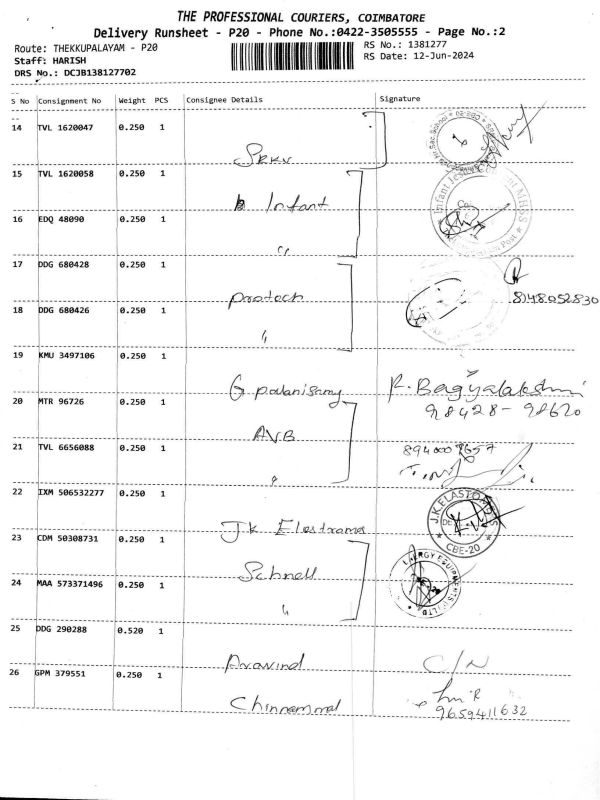 THE PROFESSIONAL COURIERS, COIMBATORE
Delivery Runsheet - P20 - Phone No.:0422-3505555 - Page No.:2
Route: THEKKUPALAYAM - P20
RS No.: 1381277
Staff: HARISH
RS Date: 12-Jun-2024
DRS No.: DCJB138127702
S No Consignment No Weight PCS Consignee Details Signature
14 TVL 1620047 0.250 1
SRKV
15 TVL 1620058 0.250 1
Infant
16 EDQ 48090 0.250 1
"
17 DDG 680428 0.250 1
Protech
8148052830
18 DDG 680426 0.250 1
"
19 KMU 3497106 0.250 1
G. palanisamy R. Bagyalakshmi
98428-98620
20 MTR 96726 0.250 1
AVB
21 TVL 6656088 0.250 1
"
22 IXM 506532277 0.250 1
J.K. ELASTOMERS
CBE-20
23 CDM 50308731 0.250 1
Schnell
ENERGY EQUIPMENTS (P) LTD
24 MAA 573371496 0.250 1
"
25 DDG 290288 0.520 1
Aravind C/N
26 GPM 379551 0.250 1
Chinnammal
9659411632